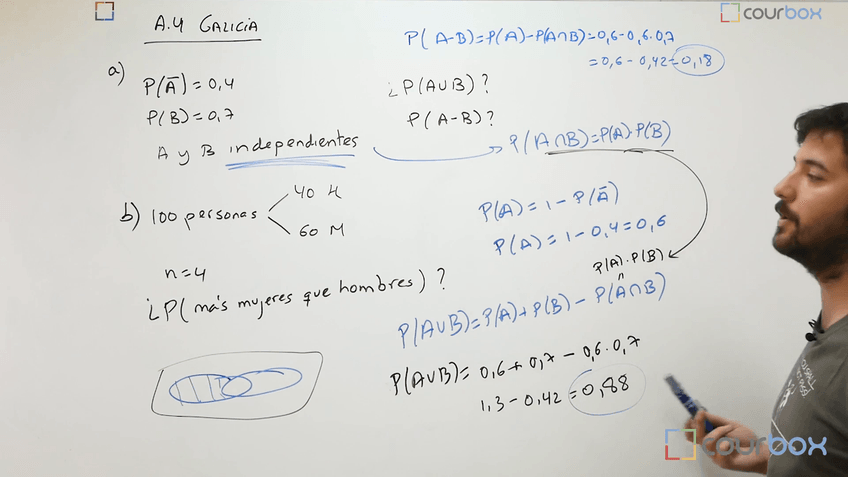 A.4 GALICIA
courbox
a)
P(A̅)=0,4
P(B)=0,7
A y B independientes
¿P(A∪B)?
P(A-B)?
P(A-B)=P(A)-P(A∩B)=0,6-0,6·0,7
=0,6-0,42=0,18
P(A∩B)=P(A)·P(B)
P(A)=1-P(A̅)
P(A)=1-0,4=0,6
P(A)·P(B)
P(A∪B)=P(A)+P(B)-P(A∩B)
P(A∪B)=0,6+0,7-0,6·0,7
1,3-0,42=0,88
b) 100 personas
40 H
60 M
n=4
¿P(más mujeres que hombres)?
courbox